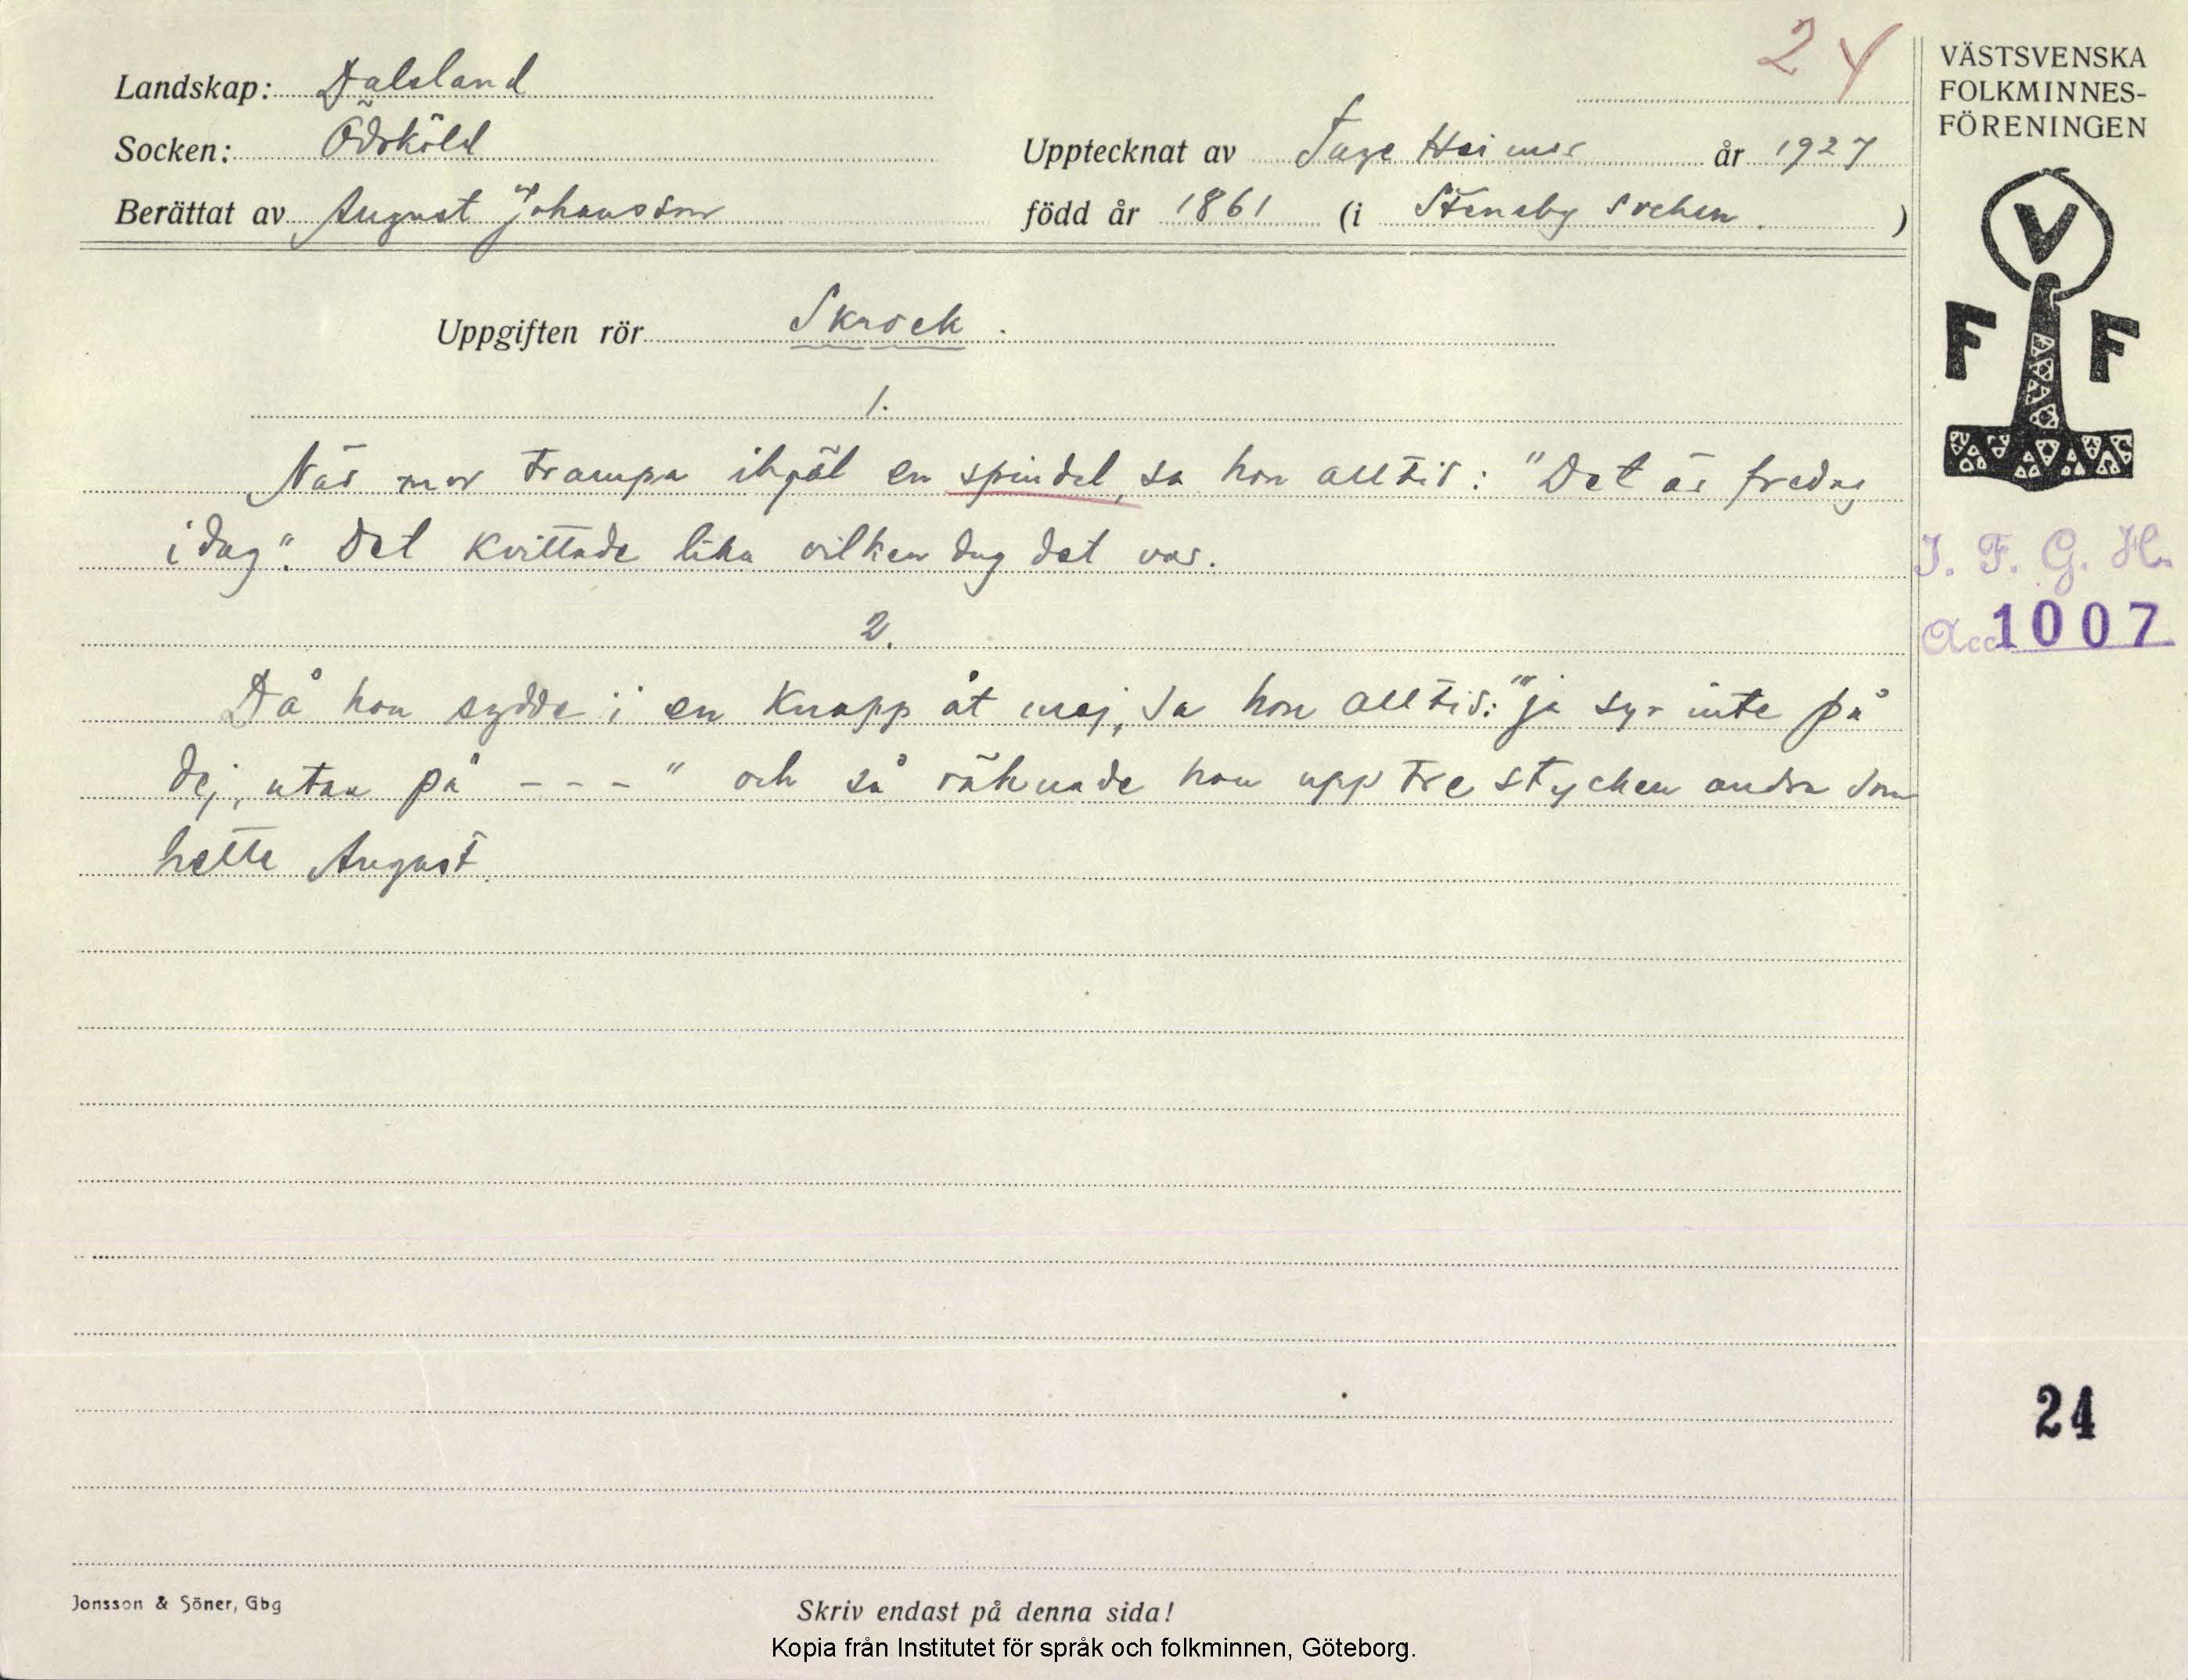 24
VÄSTSVENSKA
FOLKMINNES-
FÖRENINGEN
Landskap: Dalsland
Socken: Ödsköld
Upptecknat av Tage Heimer år 1927
Berättat av August Johansson
född år 1861 (i Steneby socken.)
V
F F
Uppgiften rör Skrock.
1.
När mor trampa ihjäl en spindel, sa hon alltid: "Det är fredag
idag". Det kvittade lika vilken dag det var.
I. F. G. H.
Acc 1007
2.
Då hon sydde i en knapp åt maj, sa hon alltid: "ja syr inte på
dej, utan på - - - " och så räknade hon upp tre stycken andra som
hette August.
24
Jonsson & Söner, Gbg
Skriv endast på denna sida!
Kopia från Institutet för språk och folkminnen, Göteborg.